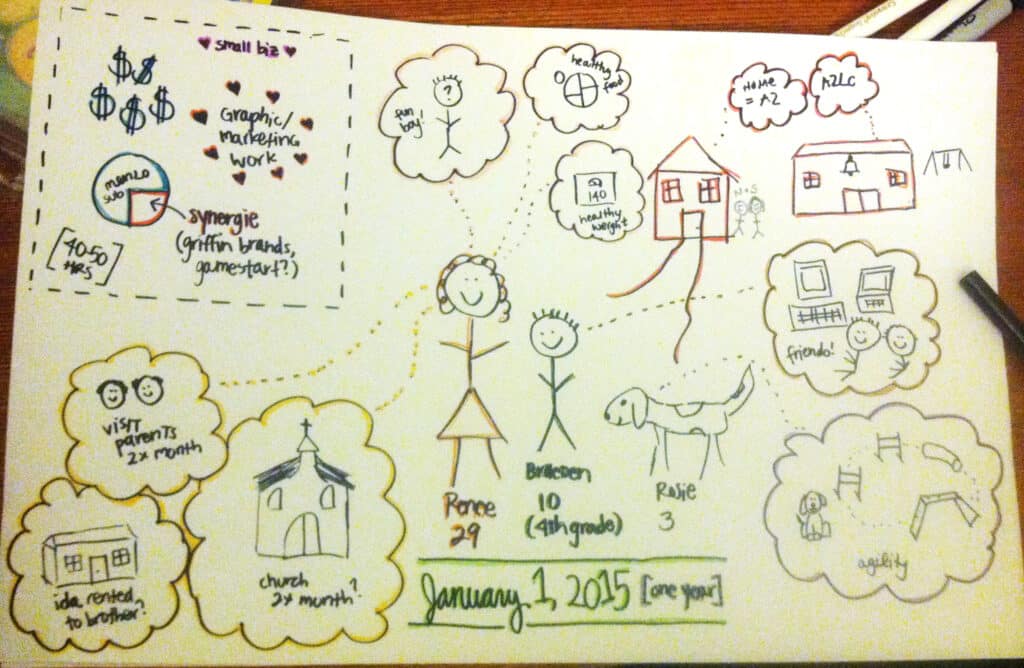 ♥ small biz ♥
$ $
$ $ $
Graphic/
marketing
work
sub
synergie
(griffin brands,
gamestart?)
[40-50
HRS]
fun
boy!
?
healthy
food
140
healthy
weight
HOME
= A2
A2LC
N + S
friends!
visit
parents
2x month
ida rented
to brother?
church
2x month?
Renee
29
Braeden
10
(4th grade)
Rosie
3
agility
January 1, 2015 [one year]